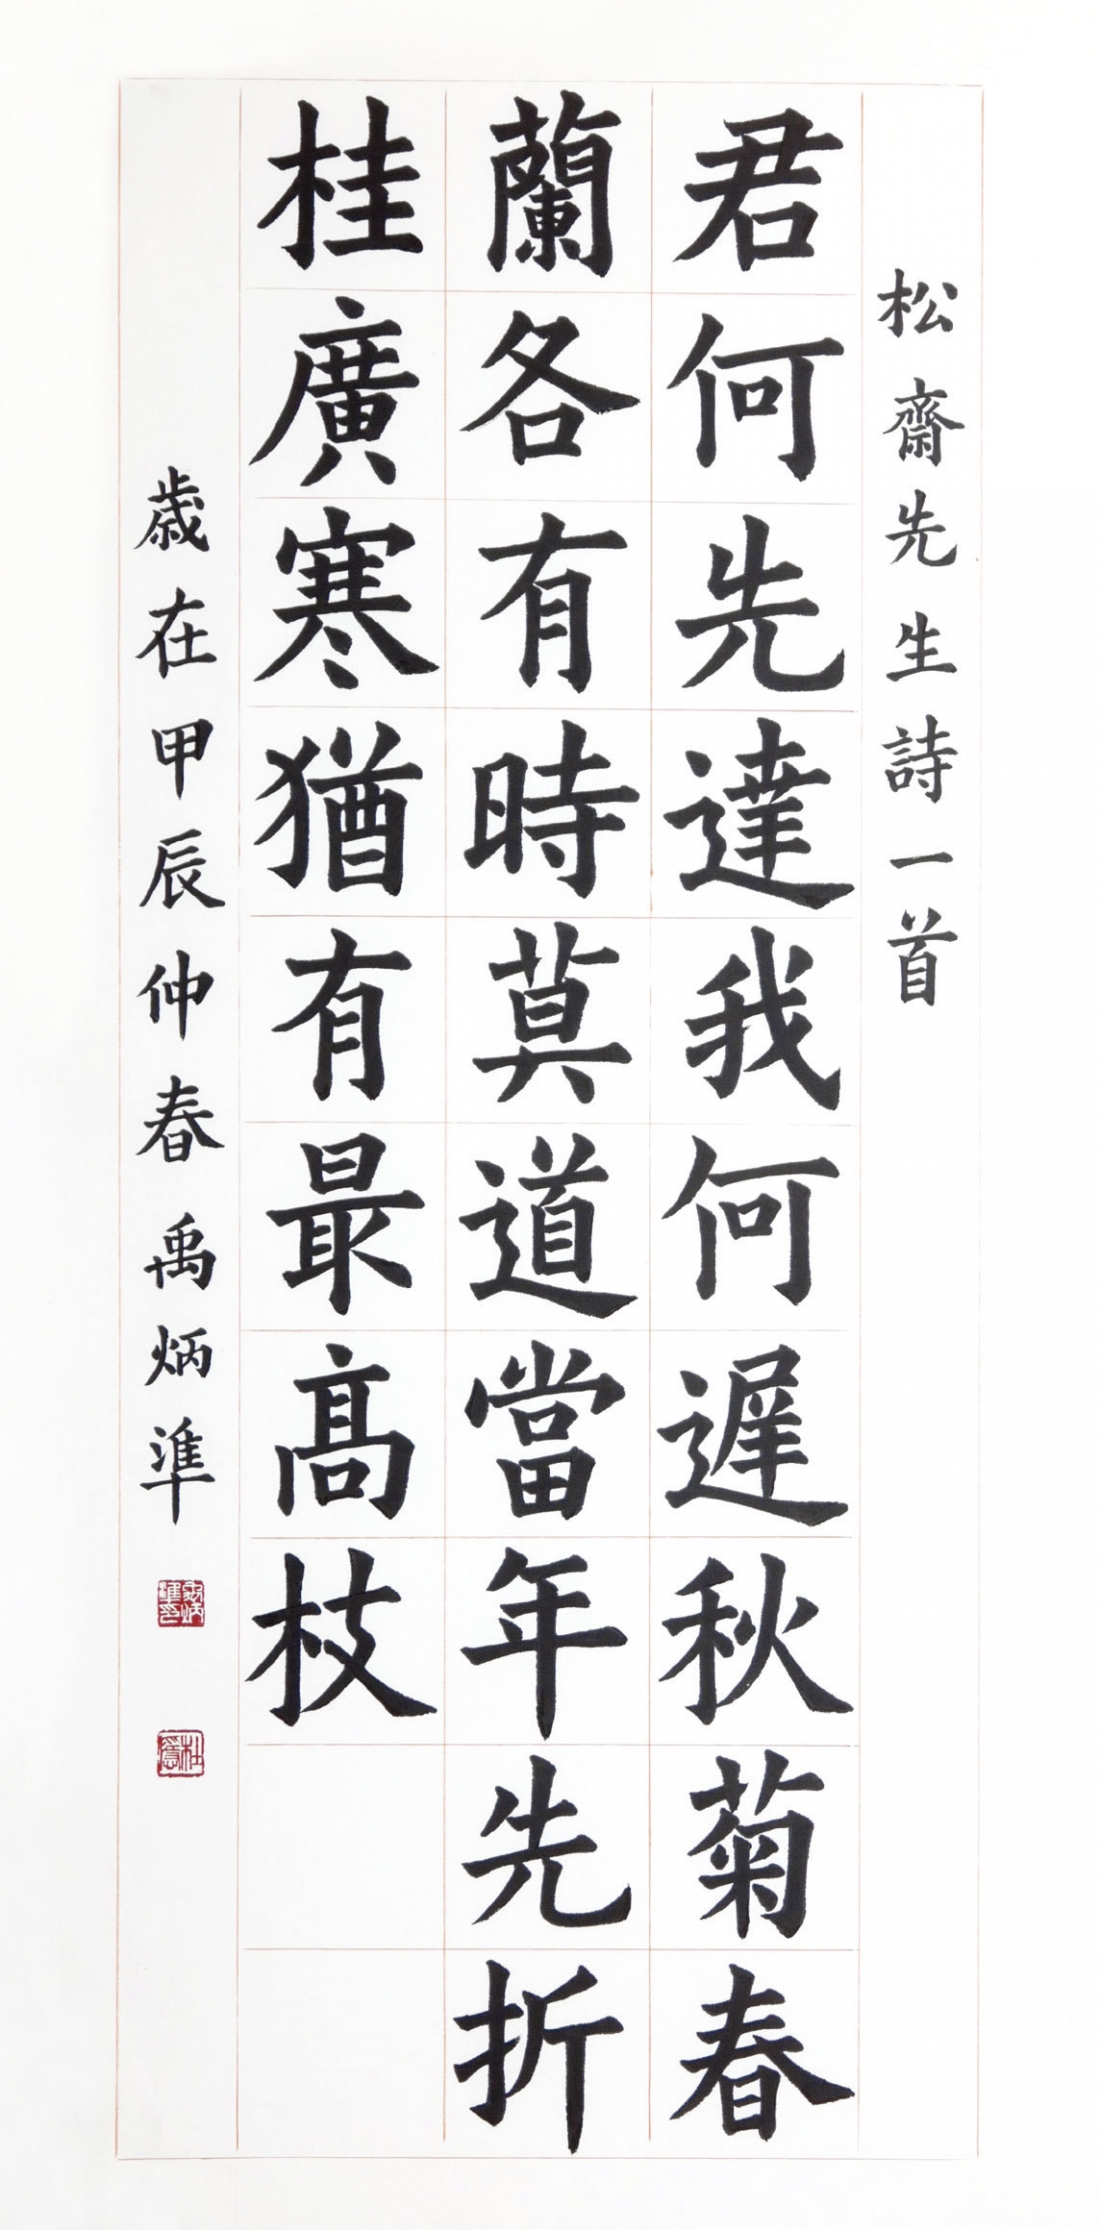 松齋先生詩一首
君何先達我何遲秋菊春
蘭各有時莫道當年先折
桂廣寒猶有最高枝
歲在甲辰仲春禹炳準